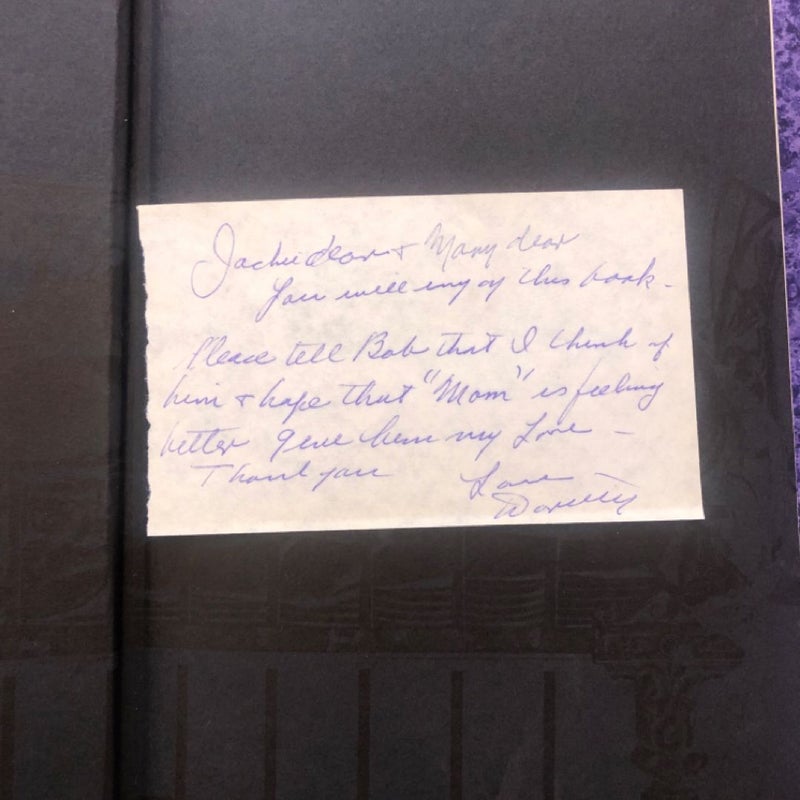 Jackie dear + Mary dear
You will enjoy this book -
Please tell Bob that I think of
him & hope that "Mom" is feeling
better give him my Love -
Thank you Love
Dorothy